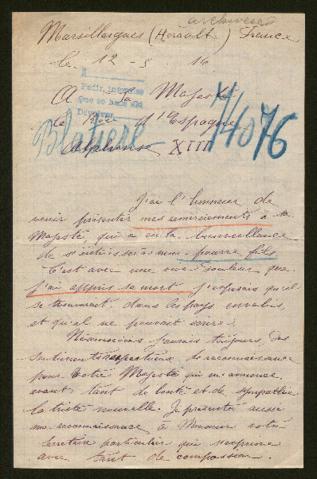 archivese
Marsillargues (Hérault) France
le 12-5 16
A
Pedir informe
que se haga del
Deposito
A sa Majesté
le Roi d'Espagne
Blatiere
Alphonse XIII
1/4076
J'ai l'honneur de
venir présenter mes remerciements à sa
Majesté qui a eu la bienveillance
de s'intéresser à mon pauvre fils
C'est avec une vive douleur que
j'ai appris sa mort j'espérais qu'il
se trouvait dans les pays envahis
et qu'il ne pouvait écrire.
Néanmoins j'aurais toujours des
sentiments respectueux de reconnaissance
pour Votre Majesté qui m'annonce
avec tant de bonté et de sympathie
la triste nouvelle. Je présente aussi
ma reconnaissance à Monsieur votre
secrétaire particulier qui s'exprime
avec tant de compassion.